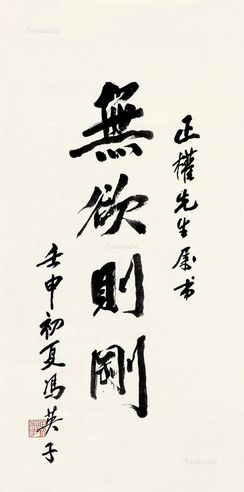 正權先生屬书
無欲則剛
壬申初夏冯英子